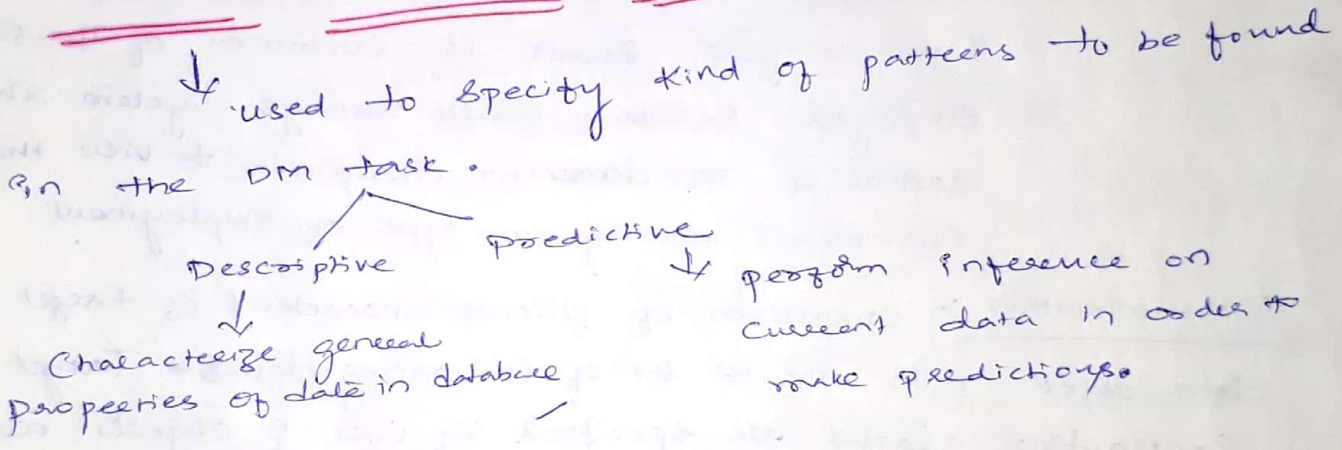 used to specify kind of patterns to be found
in the DM task.
Descriptive
predictive
Characterize general
properties of data in database
perform inference on
current data in order to
make predictions.